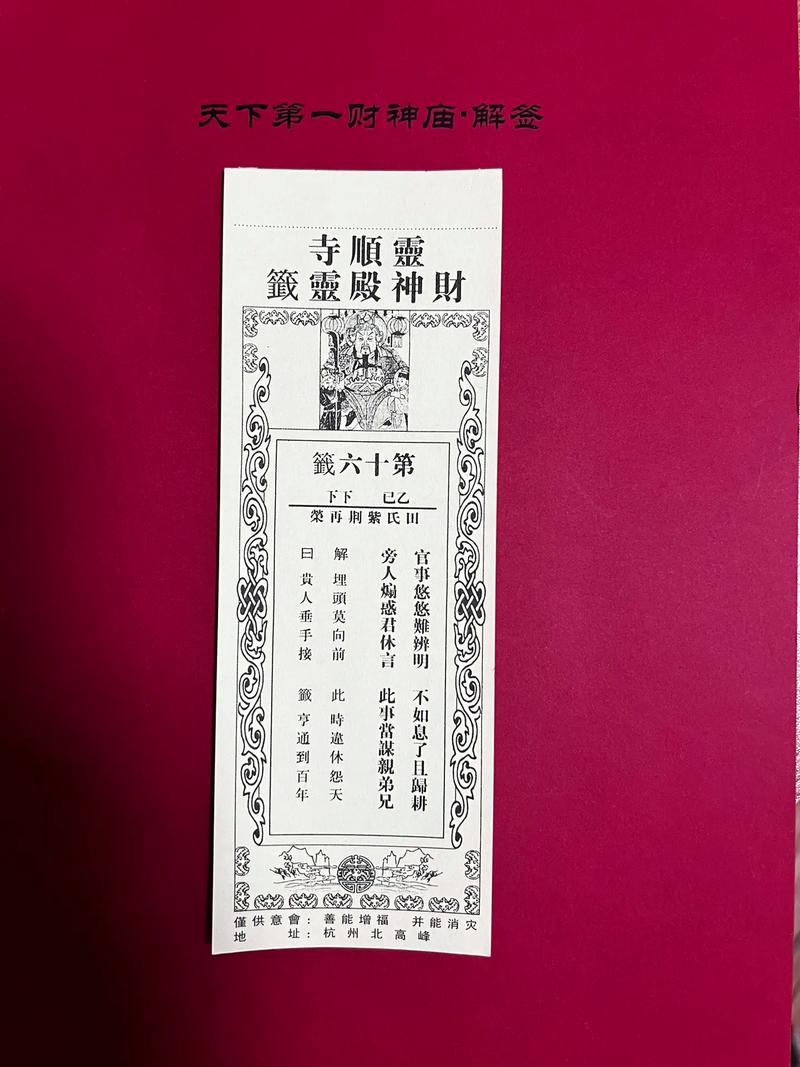 天下第一财神庙·解签
靈順寺
財神殿靈籤
第十六籤
乙巳 下下
田氏紫荆再榮
官事悠悠難辨明 不如息了且歸耕
旁人煽惑君休言 此事當謀親弟兄
解 埋頭莫向前 此 時違休怨天
曰 貴人垂手接 籤 亨通到百年
僅供意會：善能增福 并能消灾
地址：杭州北高峰